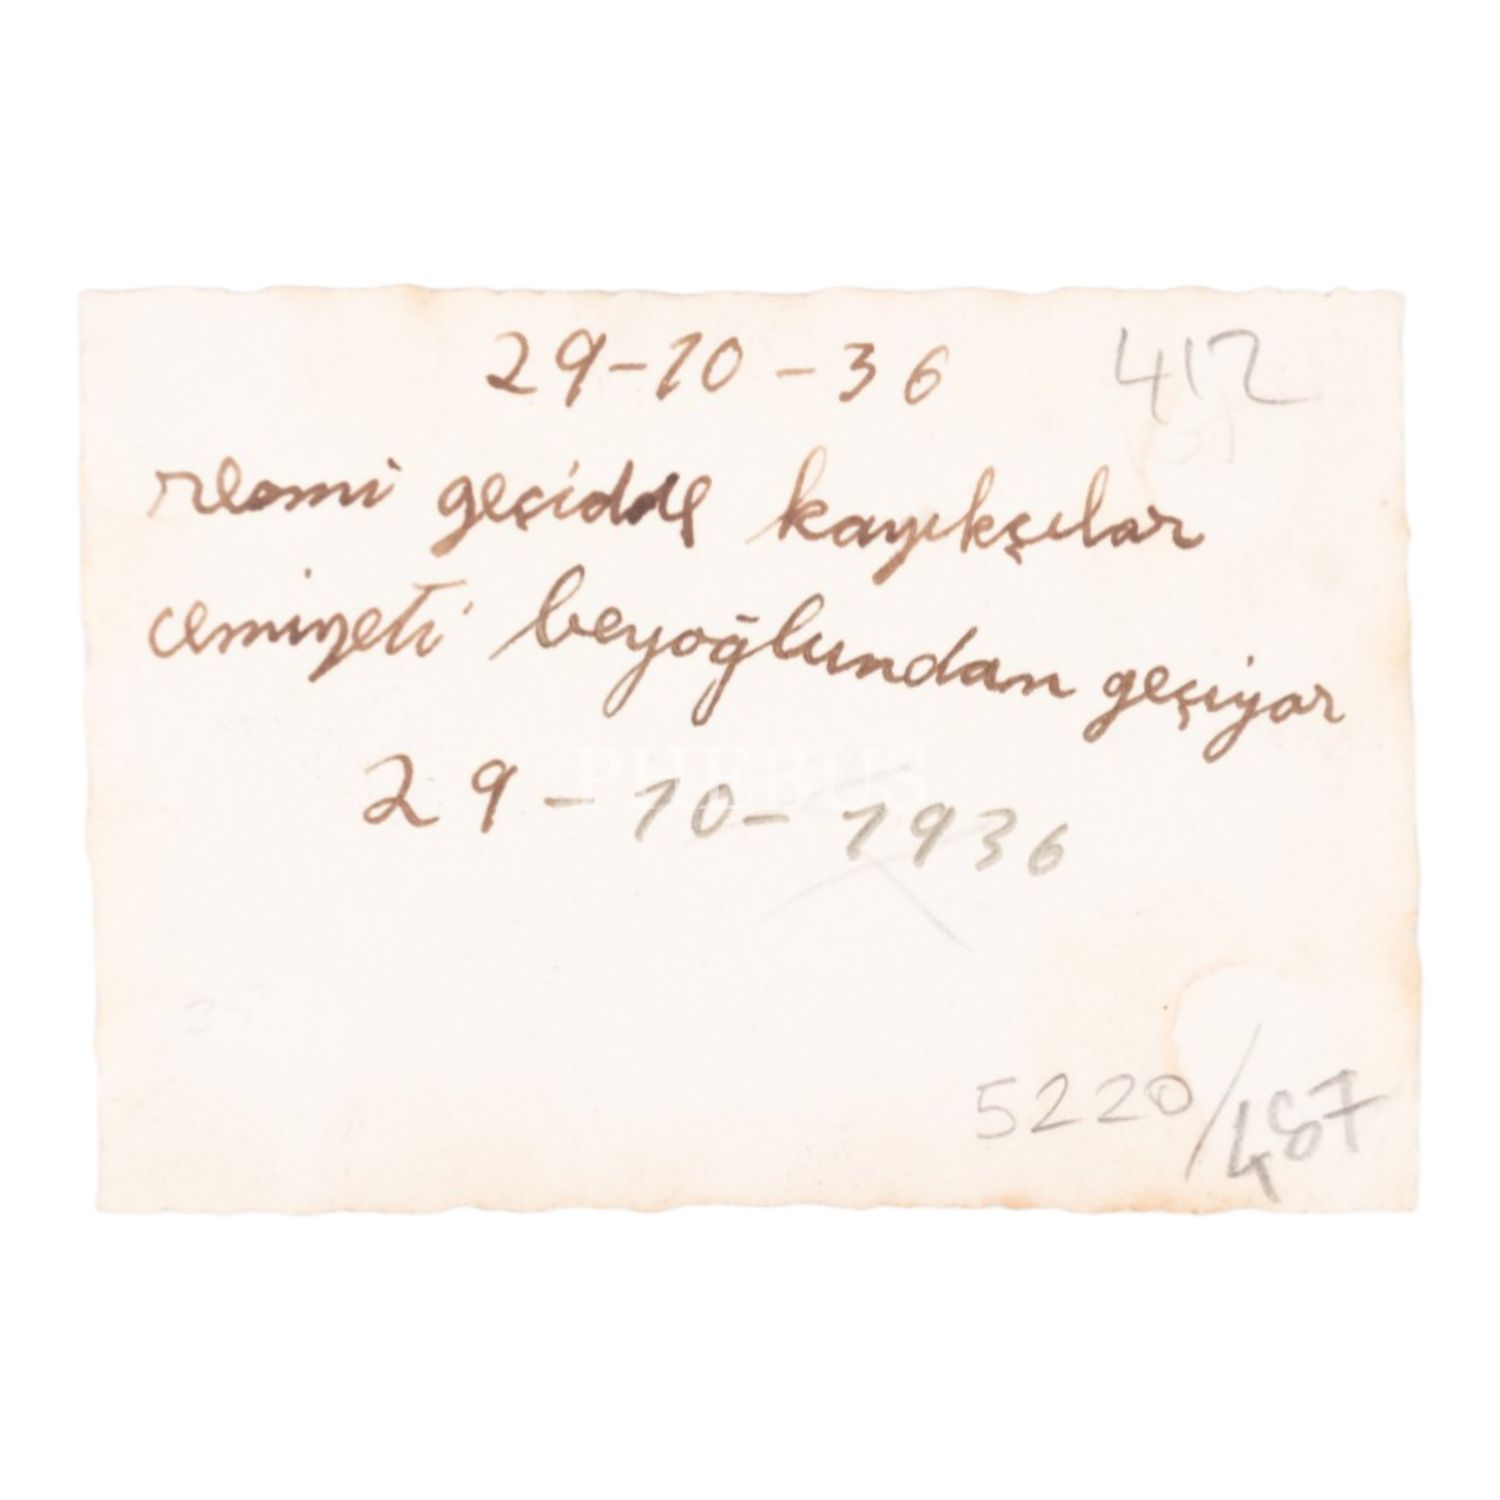 29-10-36 412
resmi geçidde kayıkçılar
cemiyeti beyoğlundan geçiyor
PHEBUS
29-10-1936
5220/487